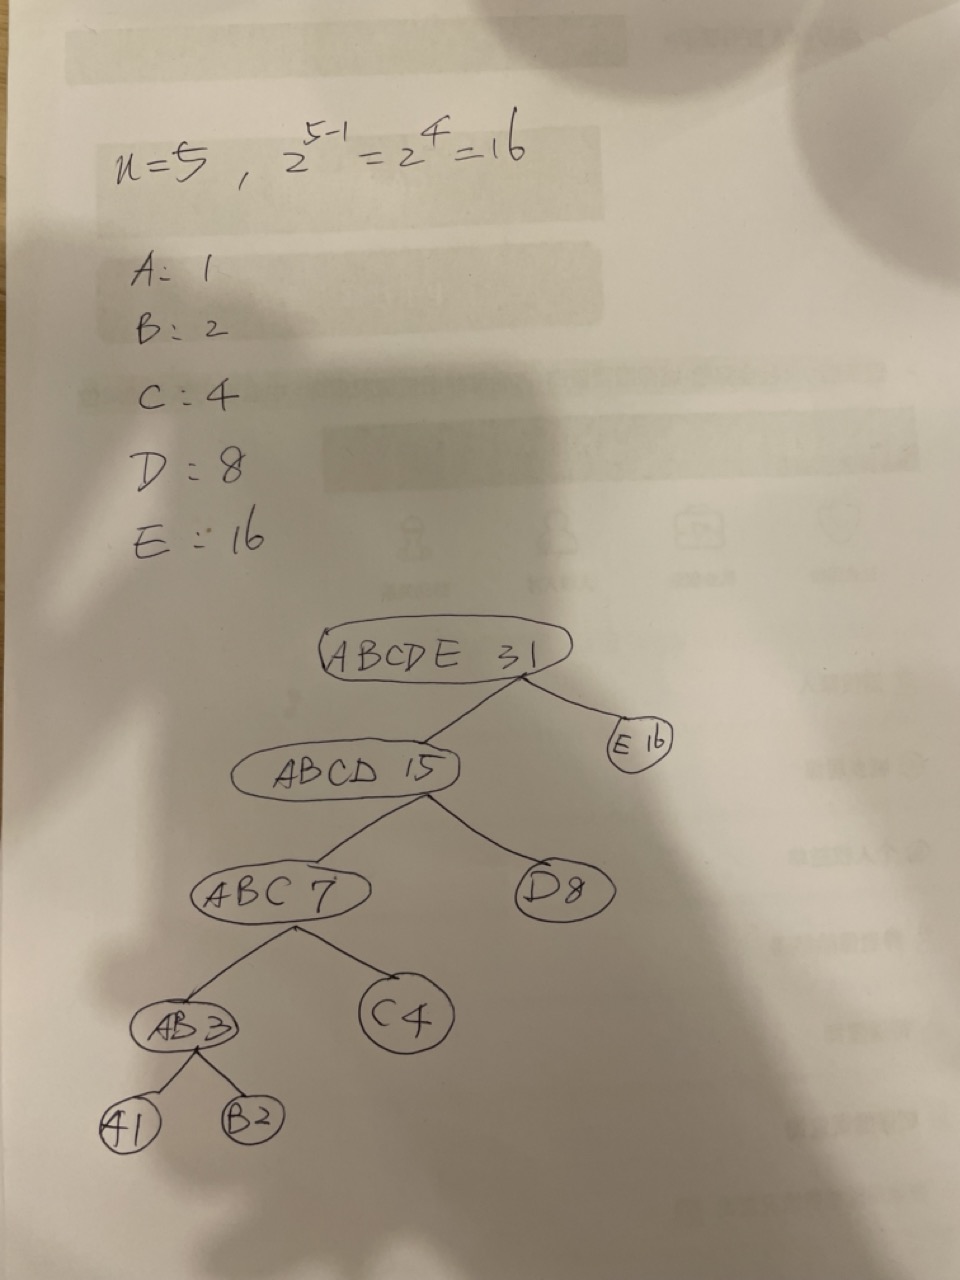 n=5, 2^5-1 = 2^4 = 16
A: 1
B: 2
C: 4
D: 8
E: 16
ABCDE 31
E 16
ABCD 15
ABC 7
D8
AB3
C4
A1
B2